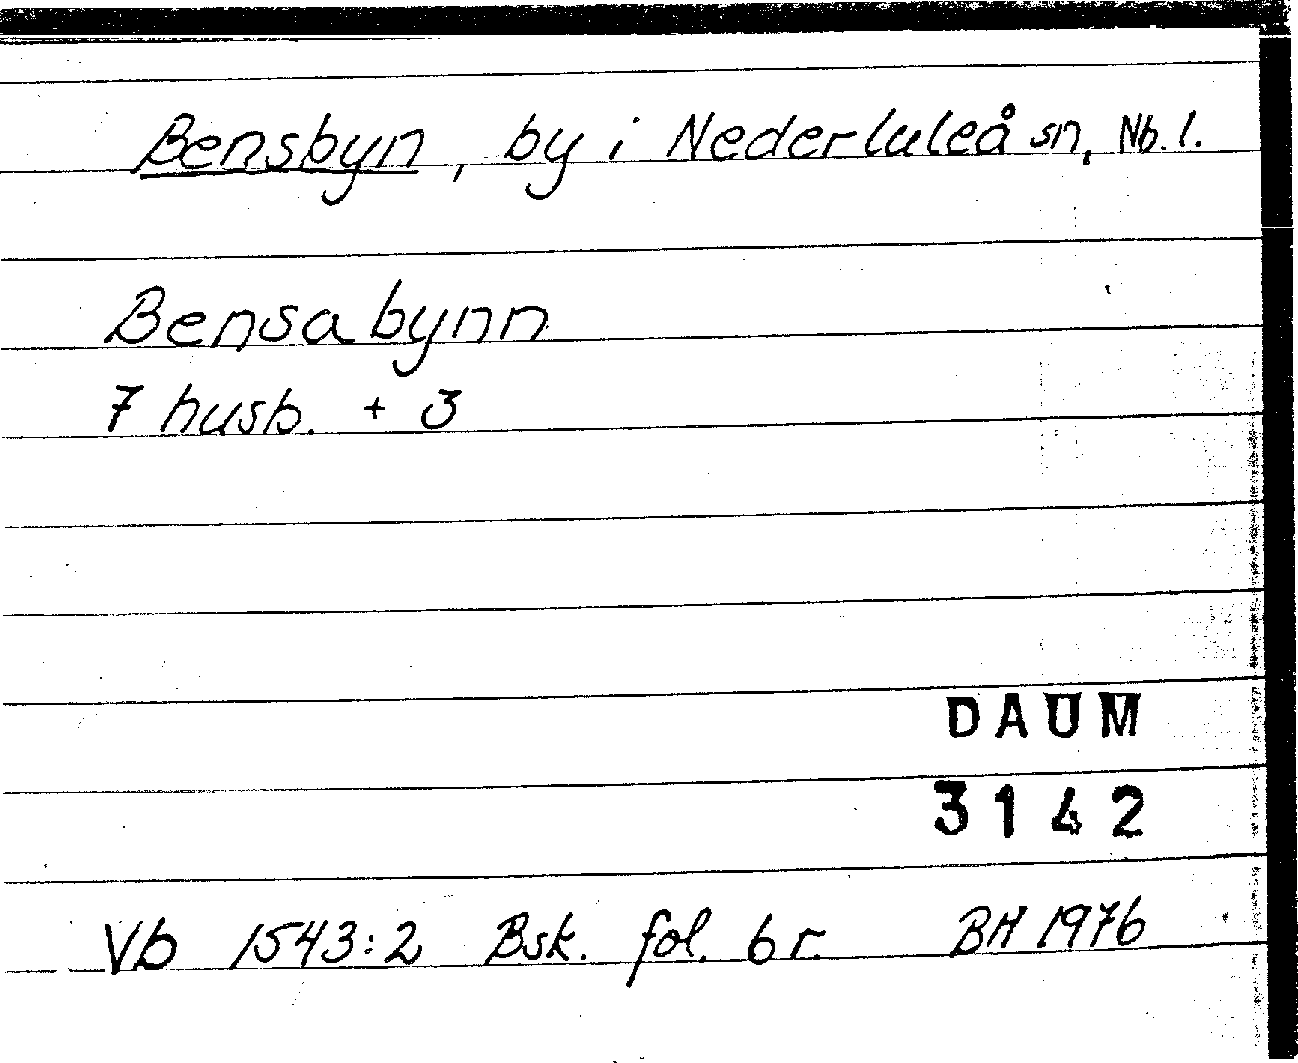 Bensbyn, by i Nederluleå sn, Nb. l.
Bensabynn
7 husb. + 3
DAUM
3142
Vb 1543:2 Bsk. fol. 6 r. BH 1976